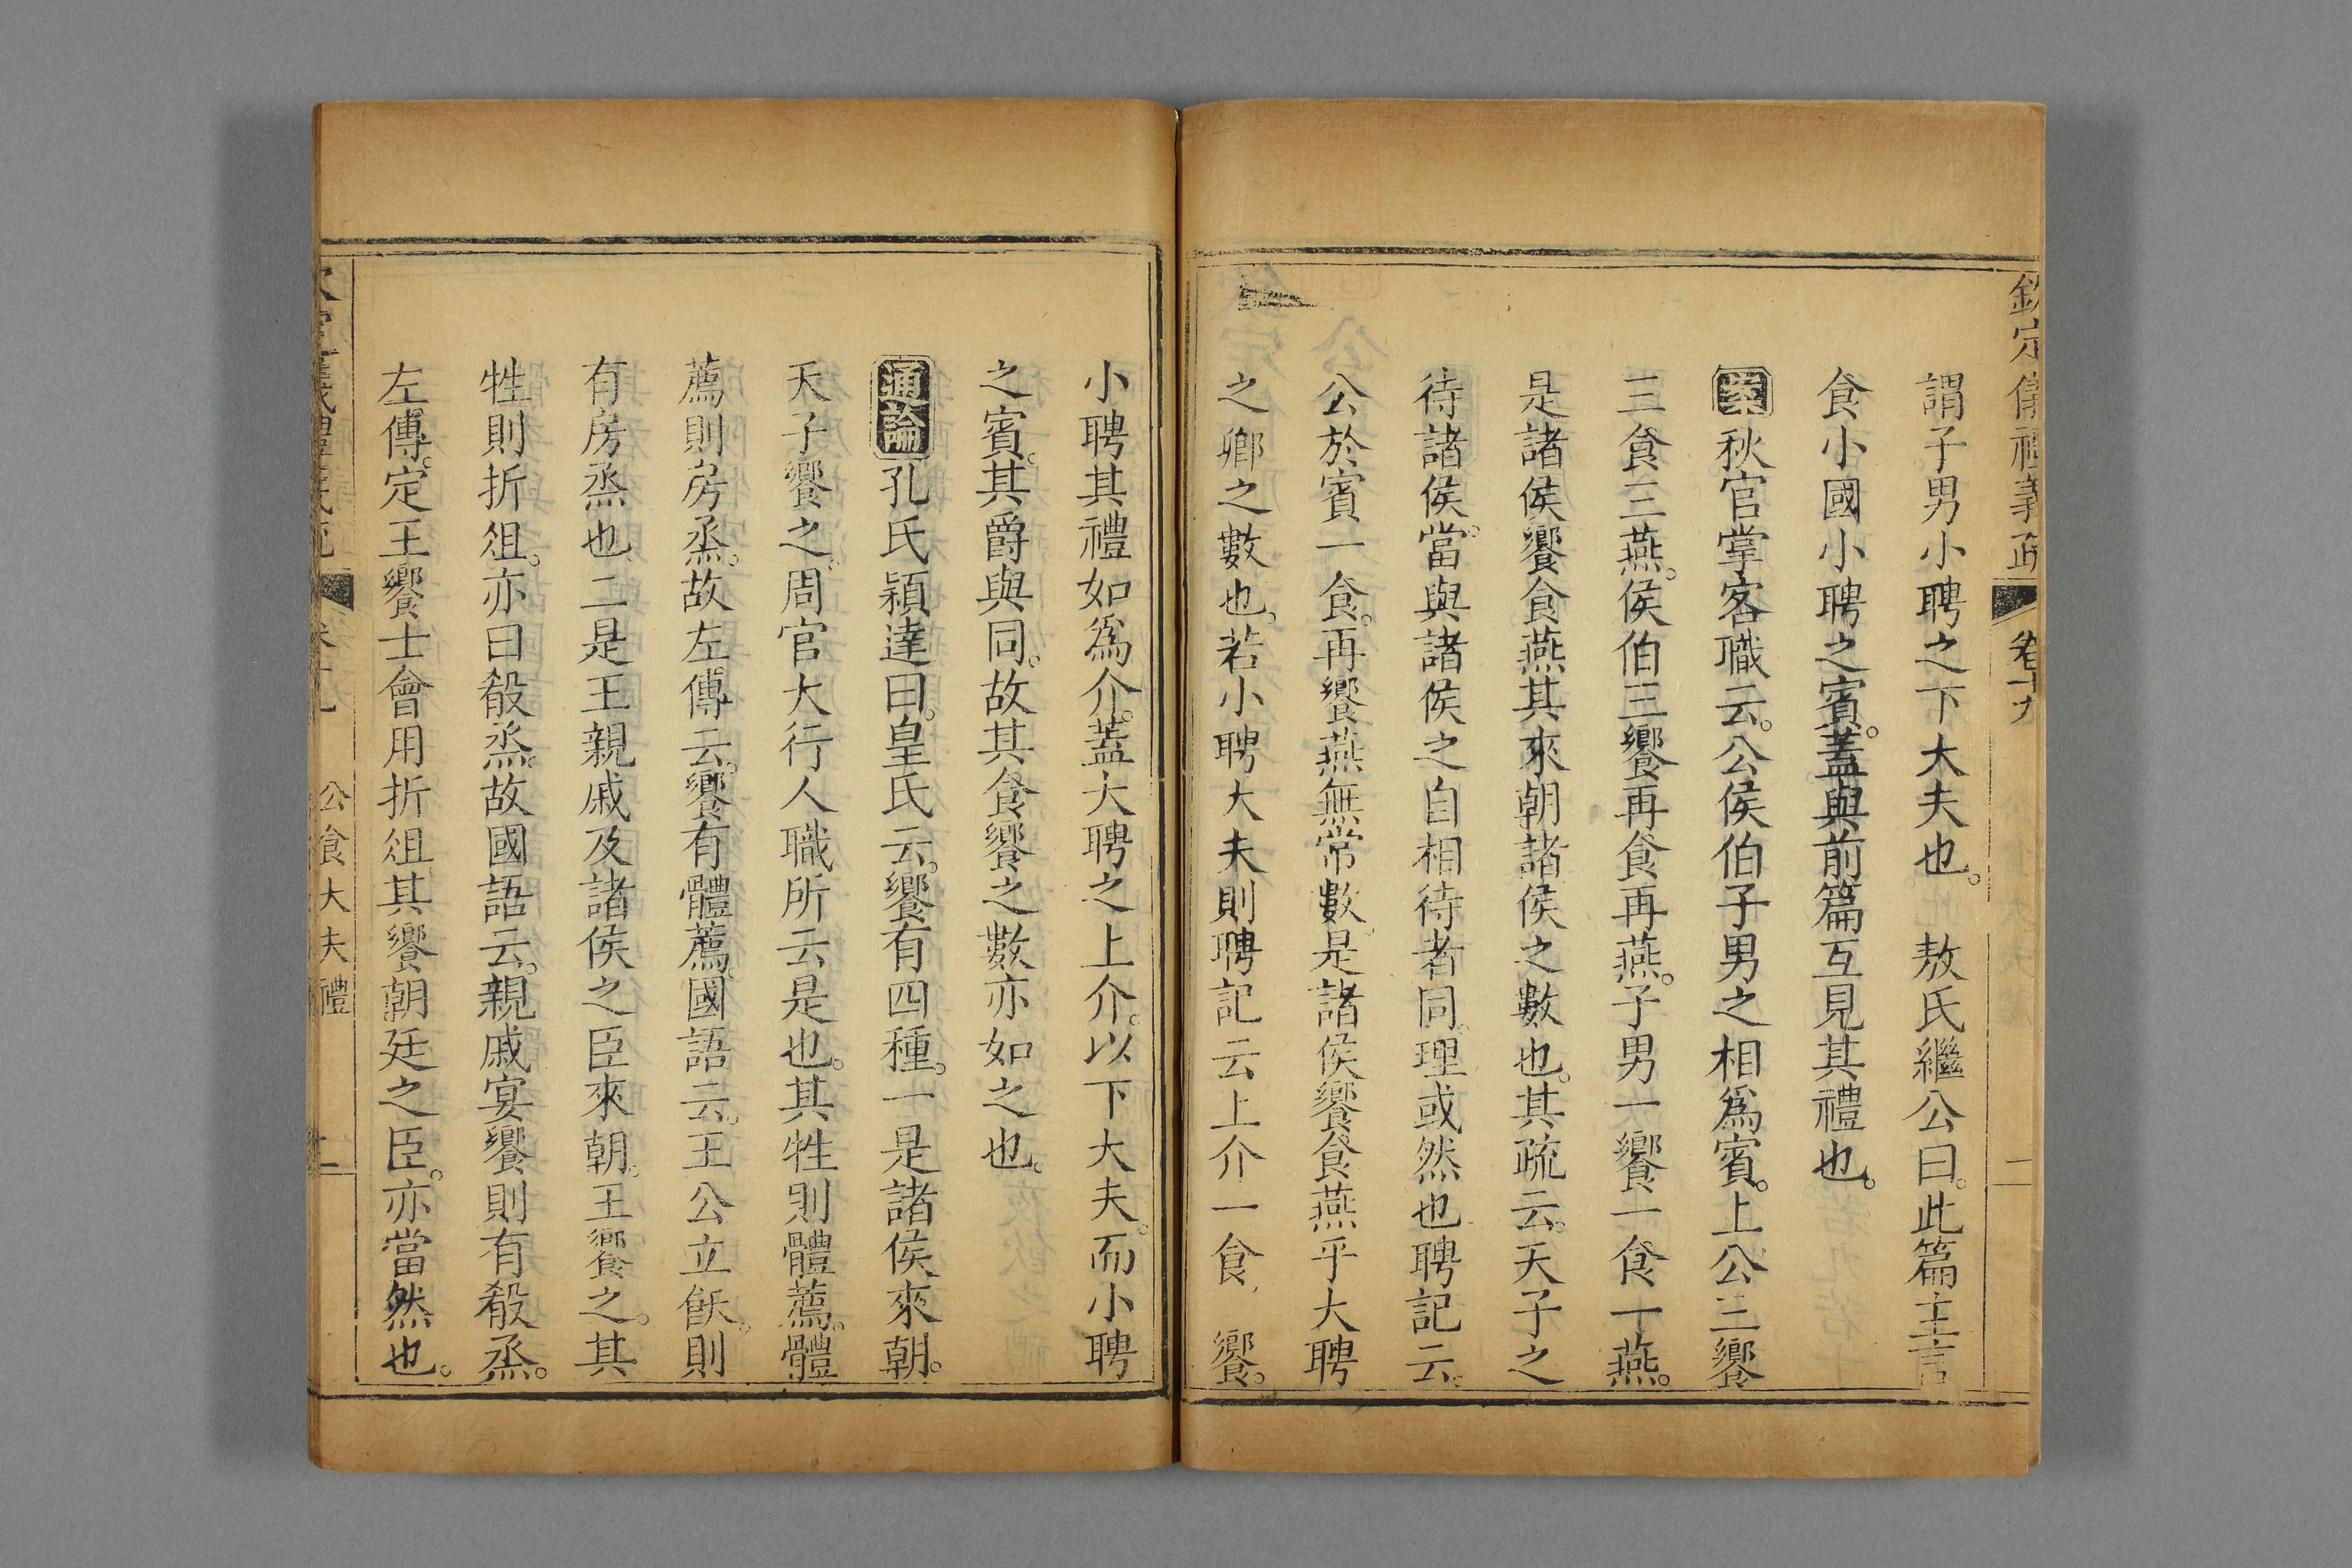 欽定儀禮義疏 卷十九 二
謂子男小聘之下大夫也。 敖氏繼公曰。此篇主言
食小國小聘之賓。蓋與前篇互見其禮也。
案秋官掌客職云。公侯伯子男之相爲賓。上公三饗
三食三燕。侯伯三饗再食再燕。子男一饗一食一燕。
是諸侯饗食燕其來朝諸侯之數也。其疏云。天子之
待諸侯。當與諸侯之自相待者同。理或然也聘記云。
公於賓一食。再饗燕無常數。是諸侯饗食燕乎大聘
之卿之數也。若小聘大夫則聘記云上介一食 饗。
小聘其禮如爲介。蓋大聘之上介。以下大夫。而小聘
之賓。其爵與同。故其食饗之數亦如之也。
通論孔氏穎達曰。皇氏云。饗有四種。一是諸侯來朝。
天子饗之。周官大行人職所云是也。其牲則體薦。體
薦則房烝。故左傳云。饗有體薦。國語云。王公立飫。則
有房烝也。二是王親戚及諸侯之臣來朝。王饗之。其
牲則折俎。亦曰殽烝。故國語云。親戚宴饗則有殽烝。
左傳。定王饗士會用折俎其饗朝廷之臣。亦當然也。
公食大夫禮